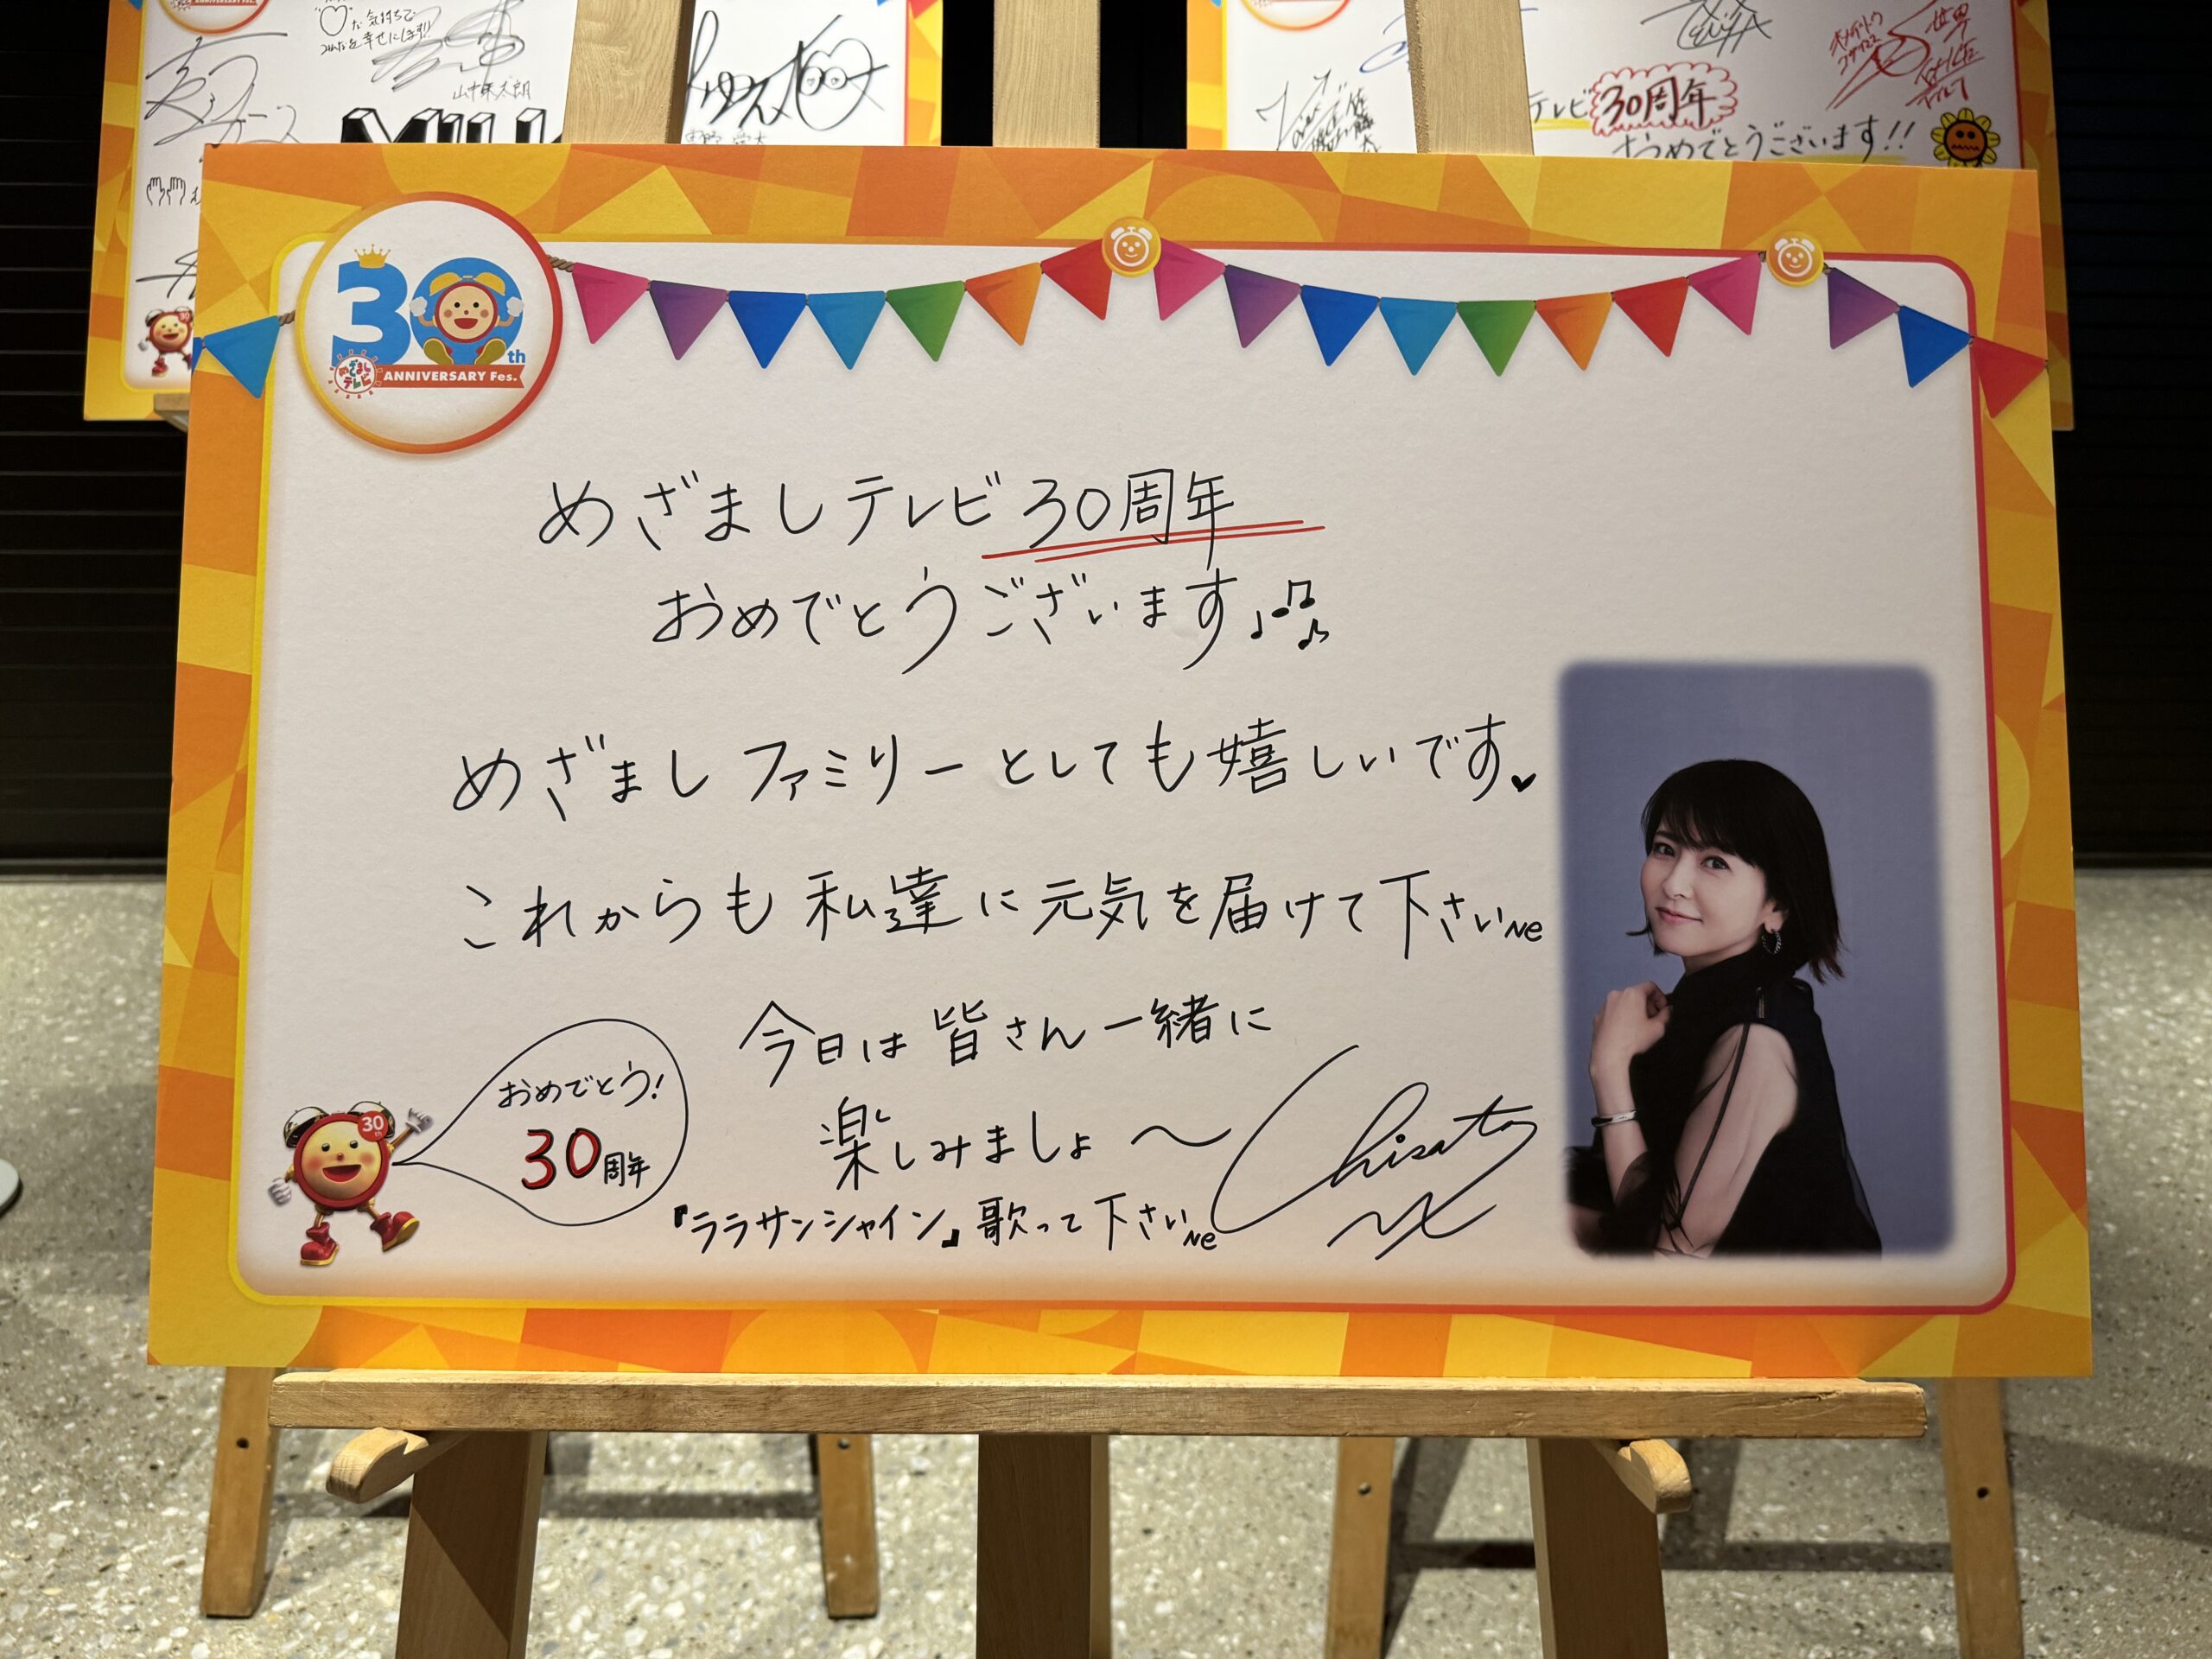 な気持ちで
みんなを幸せにします!!
山中柔太朗
M!LK
テレビ30周年
おめでとうございます!!
30th
めざましテレビ
ANNIVERSARY Fes.
めざましテレビ30周年
おめでとうございます
めざましファミリーとしても嬉しいです
これからも私達に元気を届けて下さいNe
今日は皆さん一緒に
楽しみましょ〜
『ララサンシャイン』歌って下さいNe
Chisato
おめでとう!
30周年
30th